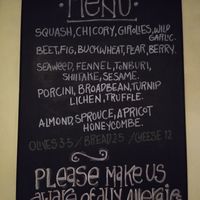 ·MENU·
SQUASH, CHICORY, GIROLLES, WILD
GARLIC.
BEET, FIG, BUCKWHEAT, PEAR, BERRY.
SEAWEED, FENNEL, TONBURI,
SHIITAKE, SESAME.
PORCINI, BROADBEAN, TURNIP
LICHEN, TRUFFLE.
ALMOND, SPROUCE, APRICOT
HONEYCOMBE.
OLIVES 3.5 / BREAD 2.5 / CHEESE 12
PLEASE MAKE US
aware of any allergies